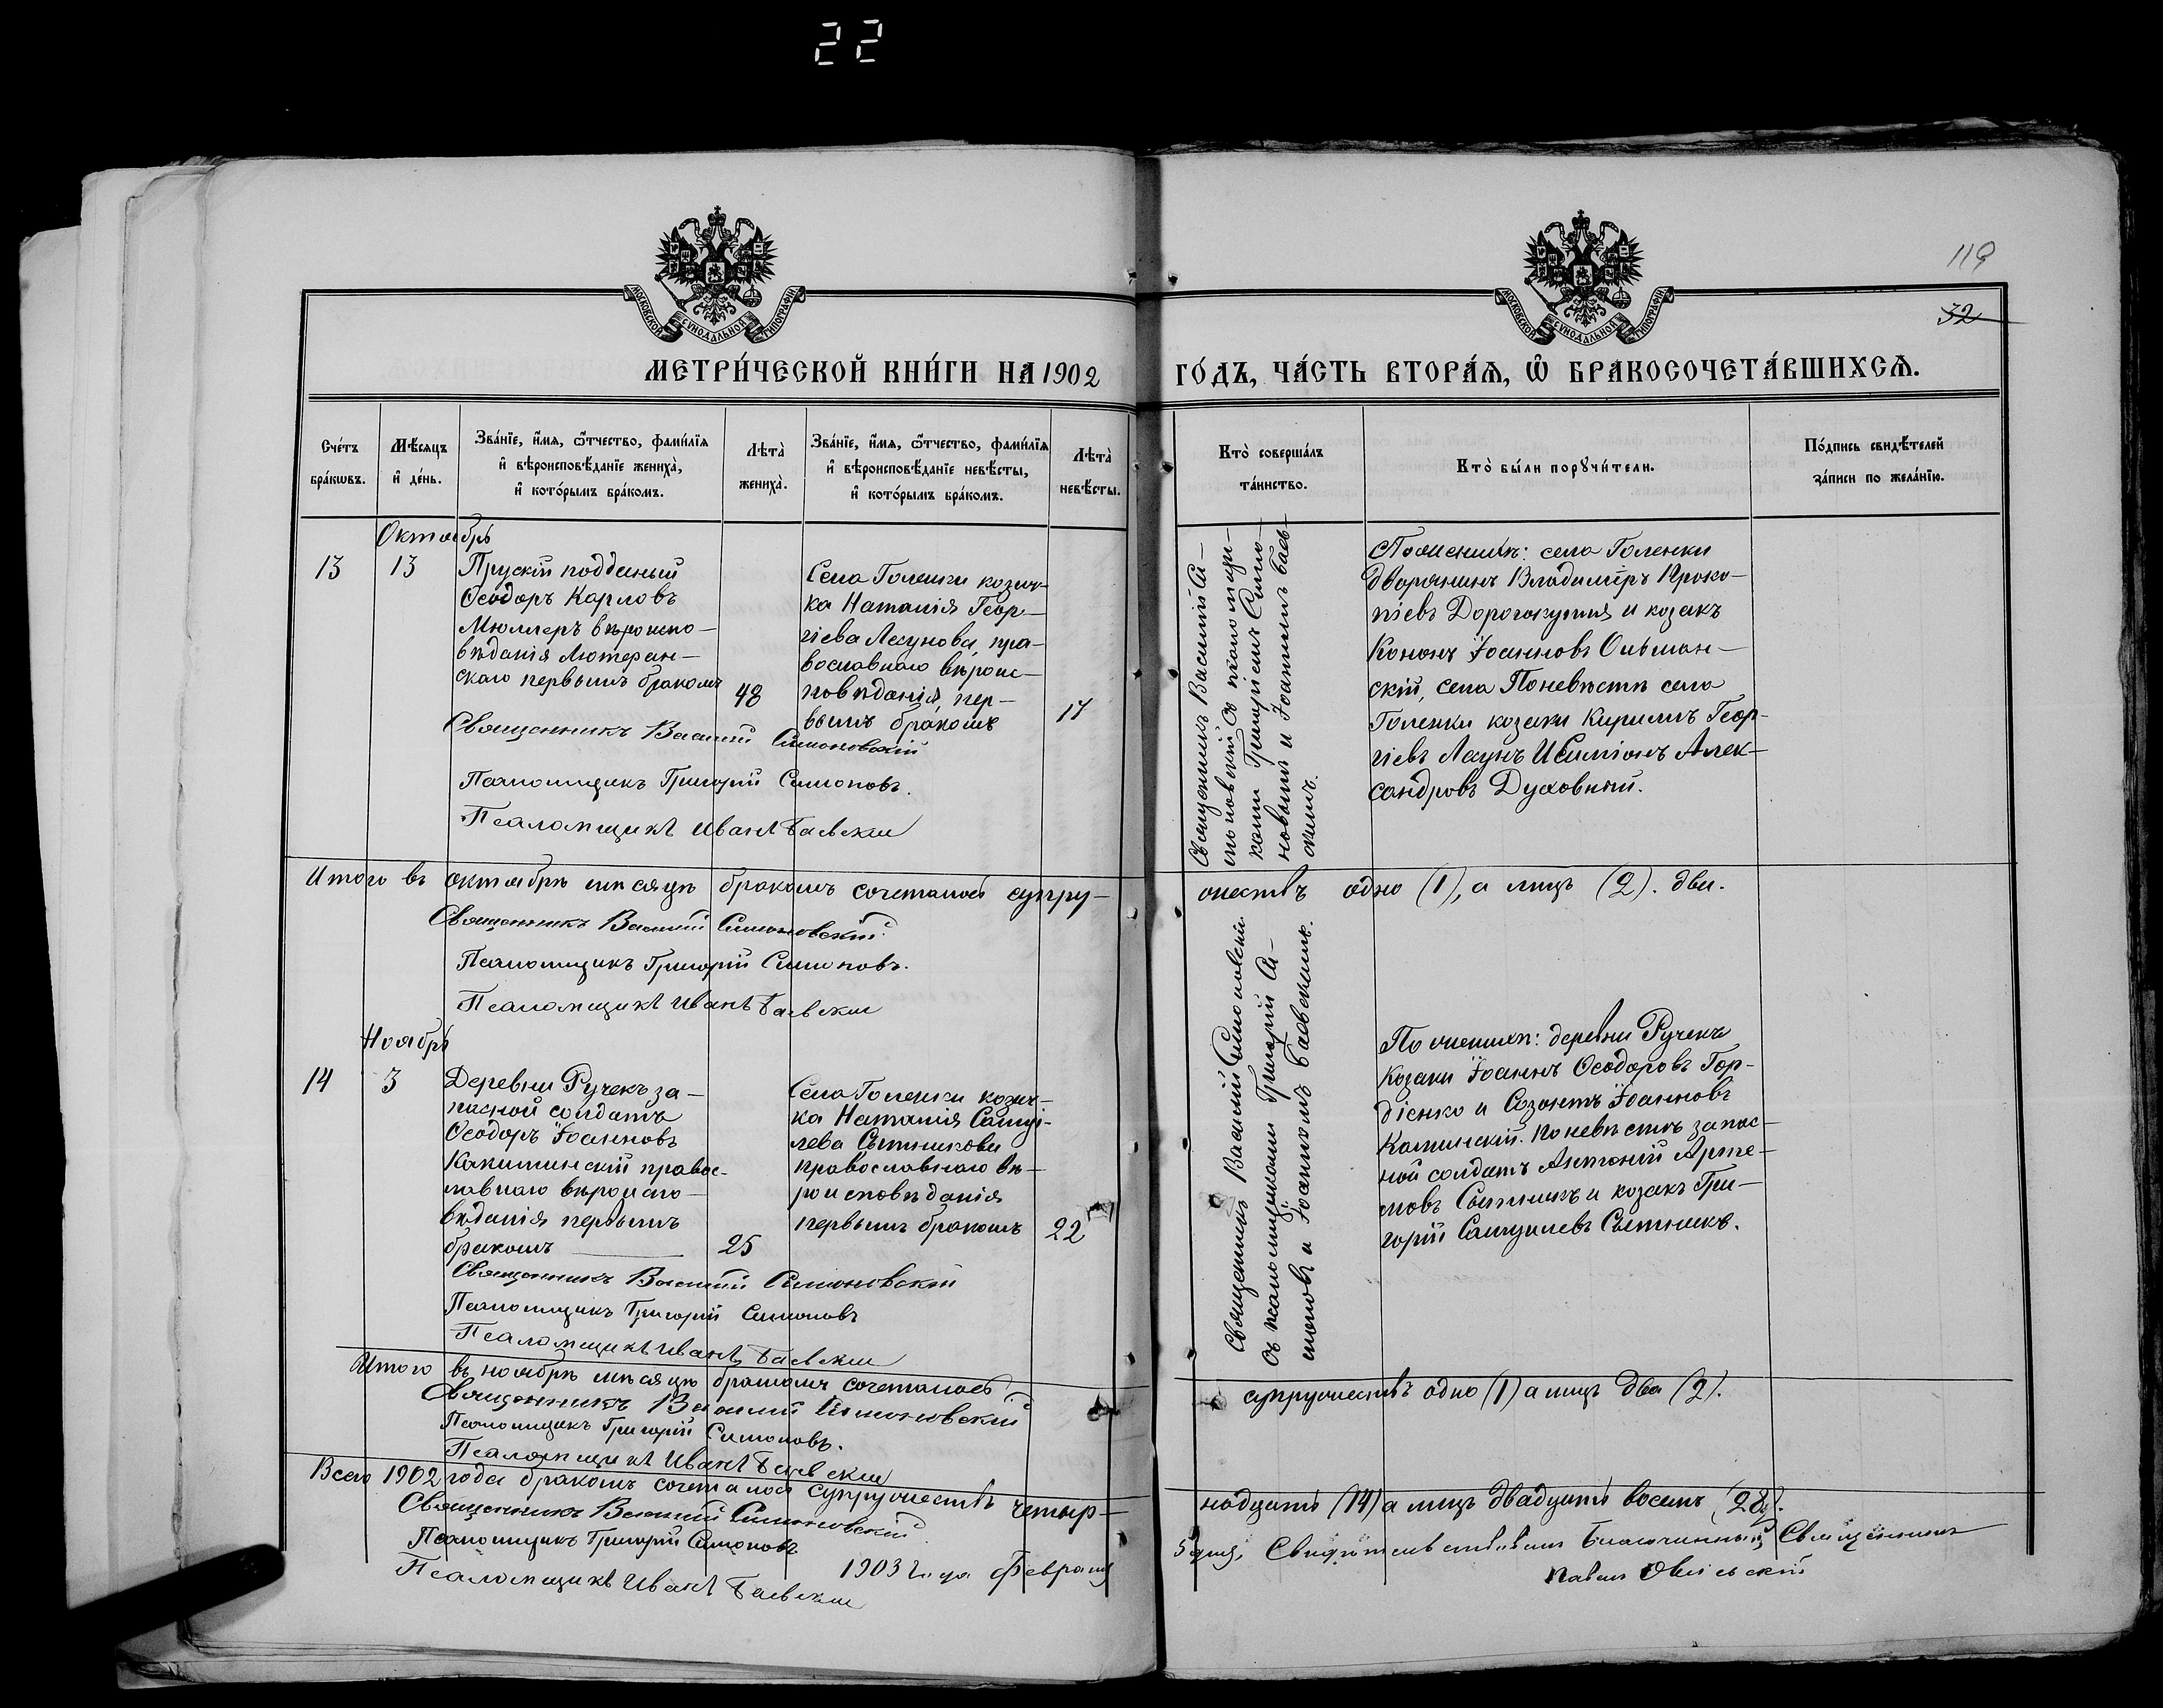 22
МОСКОВСКОЙ СУНОДАЛЬНОЙ ТИПОГРАФІИ
МОСКОВСКОЙ СУНОДАЛЬНОЙ ТИПОГРАФІИ
119
32
МЕТРИ́ЧЕСКОЙ КНИ́ГИ НА 1902
ГО́ДЪ, ЧА́СТЬ ВТОРА́Ѧ, Ѽ БРАКОСОЧЕТА́ВШИХСѦ.
Сче́тъ бра́кѡвъ.
Мѣ́сѧцъ и҆ де́нь.
Зва́нїе, и҆́мѧ, ѻ҆́тчество, фами́лїѧ
и҆ вѣроисповѣ́данїе жениха̀,
и҆ кото́рымъ бра́комъ.
Лѣта̀ жениха̀.
Зва́нїе, и҆́мѧ, ѻ҆́тчество, фами́лїѧ
и҆ вѣроисповѣ́данїе невѣ́сты,
и҆ кото́рымъ бра́комъ.
Лѣта̀ невѣ́сты.
Кто̀ соверша́лъ та́инство.
Кто̀ бы́ли порꙋчи́тели.
По́дпись свидѣ́телей за́писи по жела́нїю.
Октябрь
13
13
Прускій подданый
Ѳеодоръ Карловъ
Мюллеръ вѣроиспо-
вѣданія Лютеран-
скаго первымъ бракомъ
48
Села Голенки козач-
ка Наталія Геор-
гіева Лагунова, пра-
вославнаго вѣроис-
повѣданія, пер-
вымъ бракомъ
17
Священникъ Василій Си-
моновскій съ псаломщи-
ками Григоріемъ Симо-
новымъ и Іоанномъ Баев-
скимъ.
По женихѣ: села Голенки
дворянинъ Владиміръ Проко-
піевъ Дорогокупля и козакъ
Кононъ Іоанновъ Ольшан-
скій, села По невѣстѣ села
Голенки козаки Кириллъ Геор-
гіевъ Лагунъ и Симіонъ Алек-
сандровъ Духовный.
Священникъ Василій Симоновскій
Псаломщикъ Григорій Симоновъ.
Псаломщикъ Иванъ Баевскій
Итого въ октябрѣ мѣсяцѣ бракомъ сочеталось супру-
жествъ одно (1), а лицъ (2). два.
Священникъ Василій Симоновскій
Псаломщикъ Григорій Симоновъ.
Псаломщикъ Иванъ Баевскій
Ноябрь
14
3
Деревни Ручекъ за-
пасной солдатъ
Ѳеодоръ Іоанновъ
правос-
лавнаго вѣроиспо-
вѣданія первымъ
бракомъ
25
Села Голенки козач-
ка Наталія Самуи-
лева Сытникова
православнаго вѣ-
роисповѣданія
первымъ бракомъ
22
Священникъ Василій Симоновскій
съ псаломщиками Григорій Си-
моновъ и Іоанномъ Баевскимъ.
По женихѣ: деревни Ручекъ
козаки Іоаннъ Ѳеодоровъ Гор-
діенко и Созонтъ Іоанновъ
По невѣстѣ запас-
ной солдатъ Антоній Арте-
мовъ Сытникъ и козакъ Гри-
горій Самуилевъ Сытникъ.
Священникъ Василій Симоновскій
Псаломщикъ Григорій Симоновъ
Псаломщикъ Иванъ Баевскій
Итого въ ноябрѣ мѣсяцѣ бракомъ сочеталось
супружествъ одно (1) а лицъ два (2).
Священникъ Василій Симоновскій
Псаломщикъ Григорій Симоновъ.
Псаломщикъ Иванъ Баевскій
Всего 1902 года бракомъ сочеталось супружествъ четыр-
надцать (14) а лицъ двадцать восемь (28).
Священникъ Василій Симоновскій
Псаломщикъ Григорій Симоновъ
Псаломщикъ Иванъ Баевскій
1903 года Февраля
5 дня, Свидѣтельствовалъ Благочинный, Священникъ
Павелъ